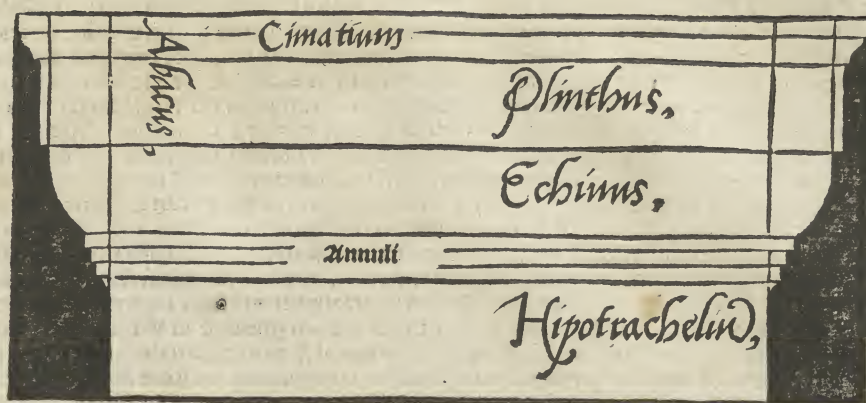 Cimatium
Abacus.
Plinthus,
Echinus,
Annuli
Hipotracheliū,